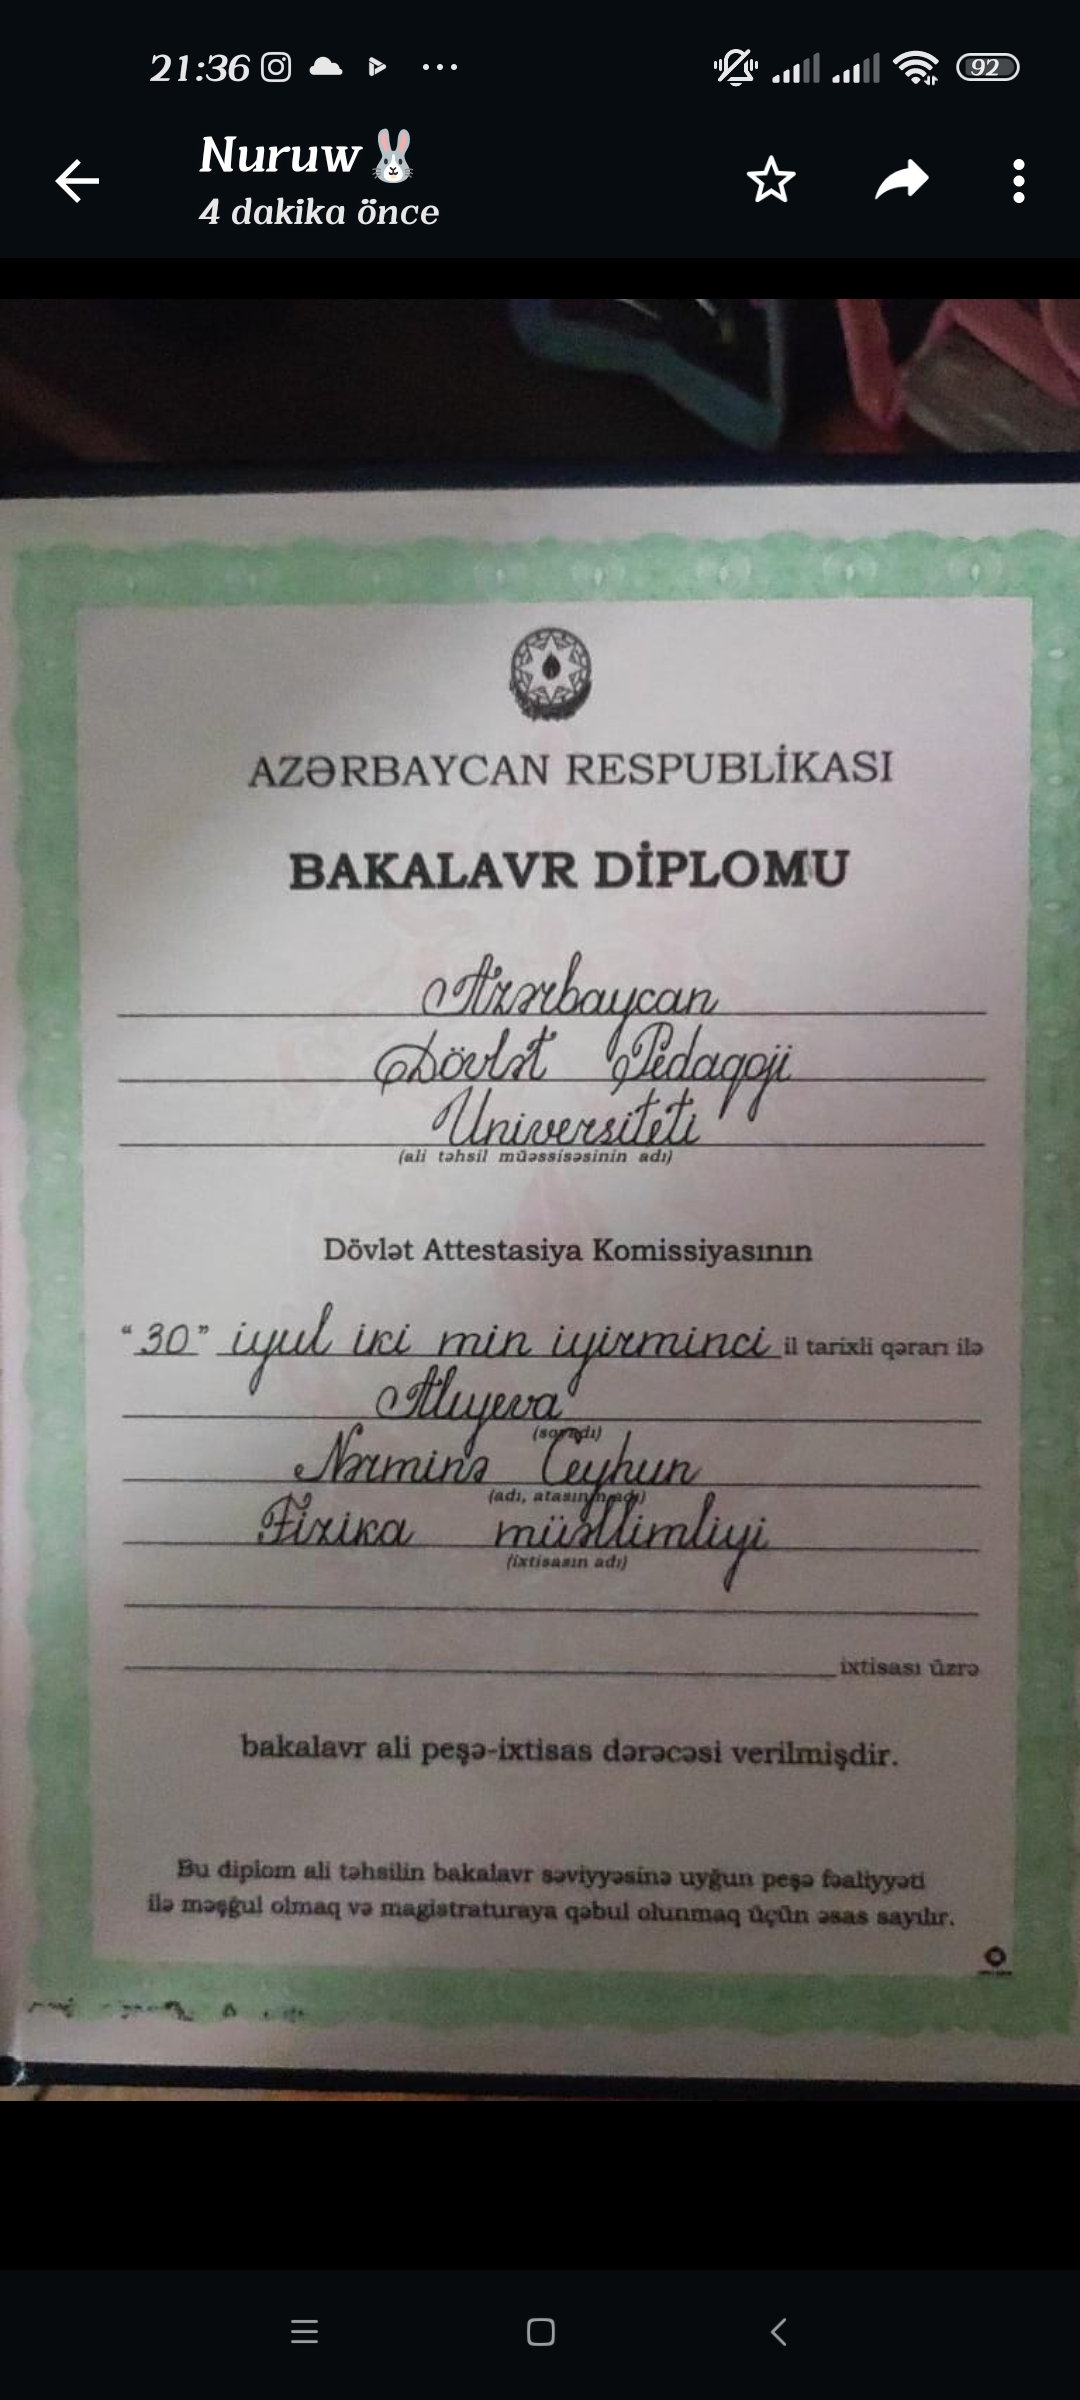 21:36
92
Nuruw
4 dakika önce
AZƏRBAYCAN RESPUBLİKASI
BAKALAVR DİPLOMU
Azərbaycan
Dövlət Pedaqoji
Universiteti
(ali təhsil müəssisəsinin adı)
Dövlət Attestasiya Komissiyasının
"30" iyul iki min iyirminci il tarixli qərarı ilə
Alıyeva
(soyadı)
Nərminə Ceyhun
(adı, atasının adı)
Fizika müəllimliyi
(ixtisasın adı)
ixtisası üzrə
bakalavr ali peşə-ixtisas dərəcəsi verilmişdir.
Bu diplom ali təhsilin bakalavr səviyyəsinə uyğun peşə fəaliyyəti
ilə məşğul olmaq və magistraturaya qəbul olunmaq üçün əsas sayılır.